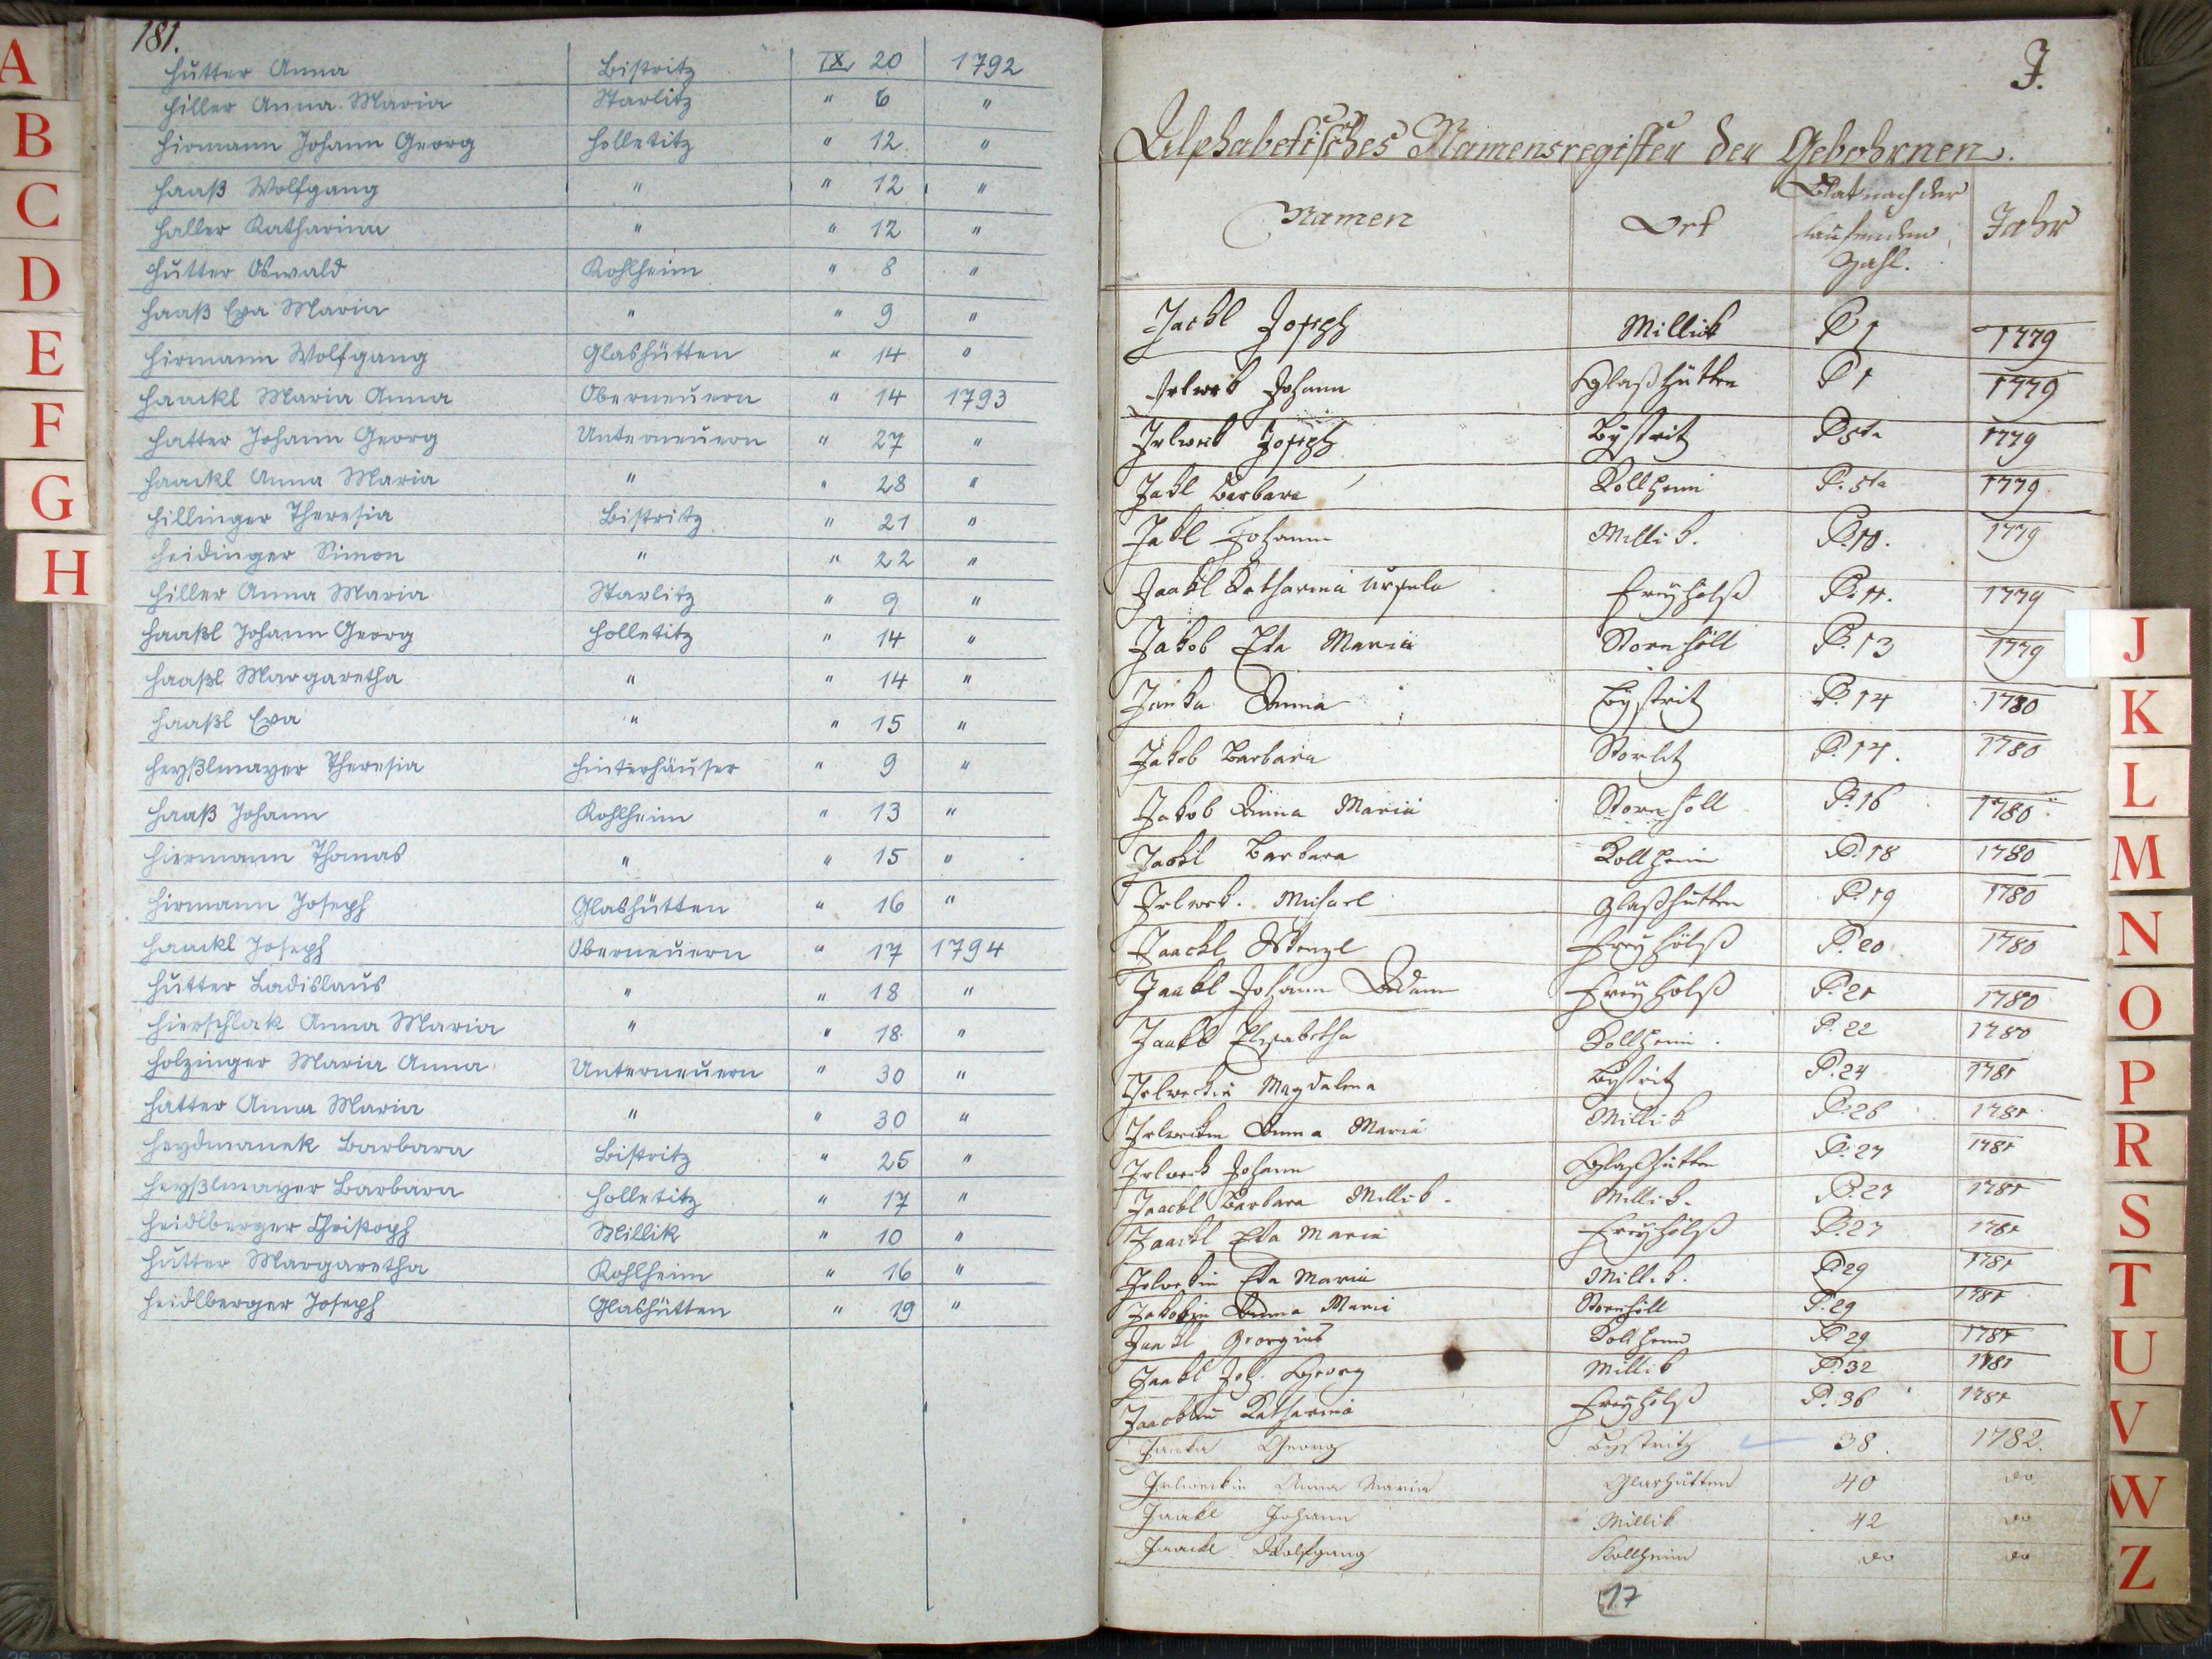 181.
Hutter Anna Bistritz IX 20 1792
Hiller Anna Maria Starlitz " 6 "
Hirmann Johann Georg Holletitz " 12 "
Haaß Wolfgang " " 12 "
Haller Katharina " " 12 "
Hutter Oswald Kohlheim " 8 "
Haaß Eva Maria " " 9 "
Hirmann Wolfgang Glashütten " 14 "
Haackl Maria Anna Oberneuern " 14 1793
Hatter Johann Georg Unterneuern " 27 "
Haackl Anna Maria " " 28 "
Hillinger Theresia Bistritz " 21 "
Heidinger Simon " " 22 "
Hiller Anna Maria Starlitz " 9 "
Haaßl Johann Georg Holletitz " 14 "
Haaßl Margaretha " " 14 "
Haaßl Eva " " 15 "
Heyßlmayer Theresia Hinterhäuser " 9 "
Haaß Johann Kohlheim " 13 "
Hiermann Thomas " " 15 "
Hirmann Joseph Glashütten " 16 "
Haackl Joseph Oberneuern " 17 1794
Hutter Ladislaus " " 18 "
Hierschlak Anna Maria " " 18 "
Holzinger Maria Anna Unterneuern " 30 "
Hatter Anna Maria " " 30 "
Heydmanek Barbara Bistritz " 25 "
Heyßlmayer Barbara Holletitz " 17 "
Heidlberger Christoph Millik " 10 "
Hutter Margaretha Kohlheim " 16 "
Heidlberger Joseph Glashütten " 19 "
J.
Alphabetisches Namensregister der Gebohrnen.
Namen Ort Blat nach der laufenden Zahl. Jahr
Jackl Joseph Millik P 1 1779
Irlweck Johann Glaßhütten P 1 1779
Irlweck Joseph Bystritz 1779
Jakl Barbara Kollheim 1779
Jakl Johann Millik. P. 10. 1779
Jaakl Katharina Ursula Freyhölß P. 11. 1779
Jakob Eva Maria Stornhöll P. 13 1779
Janka Anna Bystritz P. 14 1780
Jakob Barbara Storlitz P. 14. 1780
Jakob Anna Maria Stornhöll P. 16 1780
Jackl Barbara Kollheim P. 18 1780
Irlweck. Michael Glaßhütten P. 19 1780
Jaackl Wenzl Freyhölß P. 20 1780
Jaakl Johann Adam Freyhölß P. 21 1780
Jaakl Elisabetha Kollheim P. 22 1780
Irlweckin Magdalena Bystritz P. 24 1781
Irlweckin Anna Maria Millik P. 26 1781
Irlweck Johann Glaßhütten P. 27 1781
Jaackl Barbara Millik. Millik. P. 27 1781
Jaackl Eva Maria Freyhölß P. 27 1781
Irlweckin Eva Maria Millik. P 29 1781
Jakobin Anna Maria Stornhöll P. 29 1781
Jaackl Georgius Kollheim P 29 1781
Jaakl Joh. Georg Millik P. 32 1781
Jaacklin Katharina Freyhölß P. 36 1781
Janka Georg Bystritz 38. 1782.
Irlweckin Anna Maria Glashütten 40 do
Jaakl Johann Millik 42 do
Jaackl Wolfgang Kollheim do do
17
A
B
C
D
E
F
G
H
J
K
L
M
N
O
P
R
S
T
U
V
W
Z